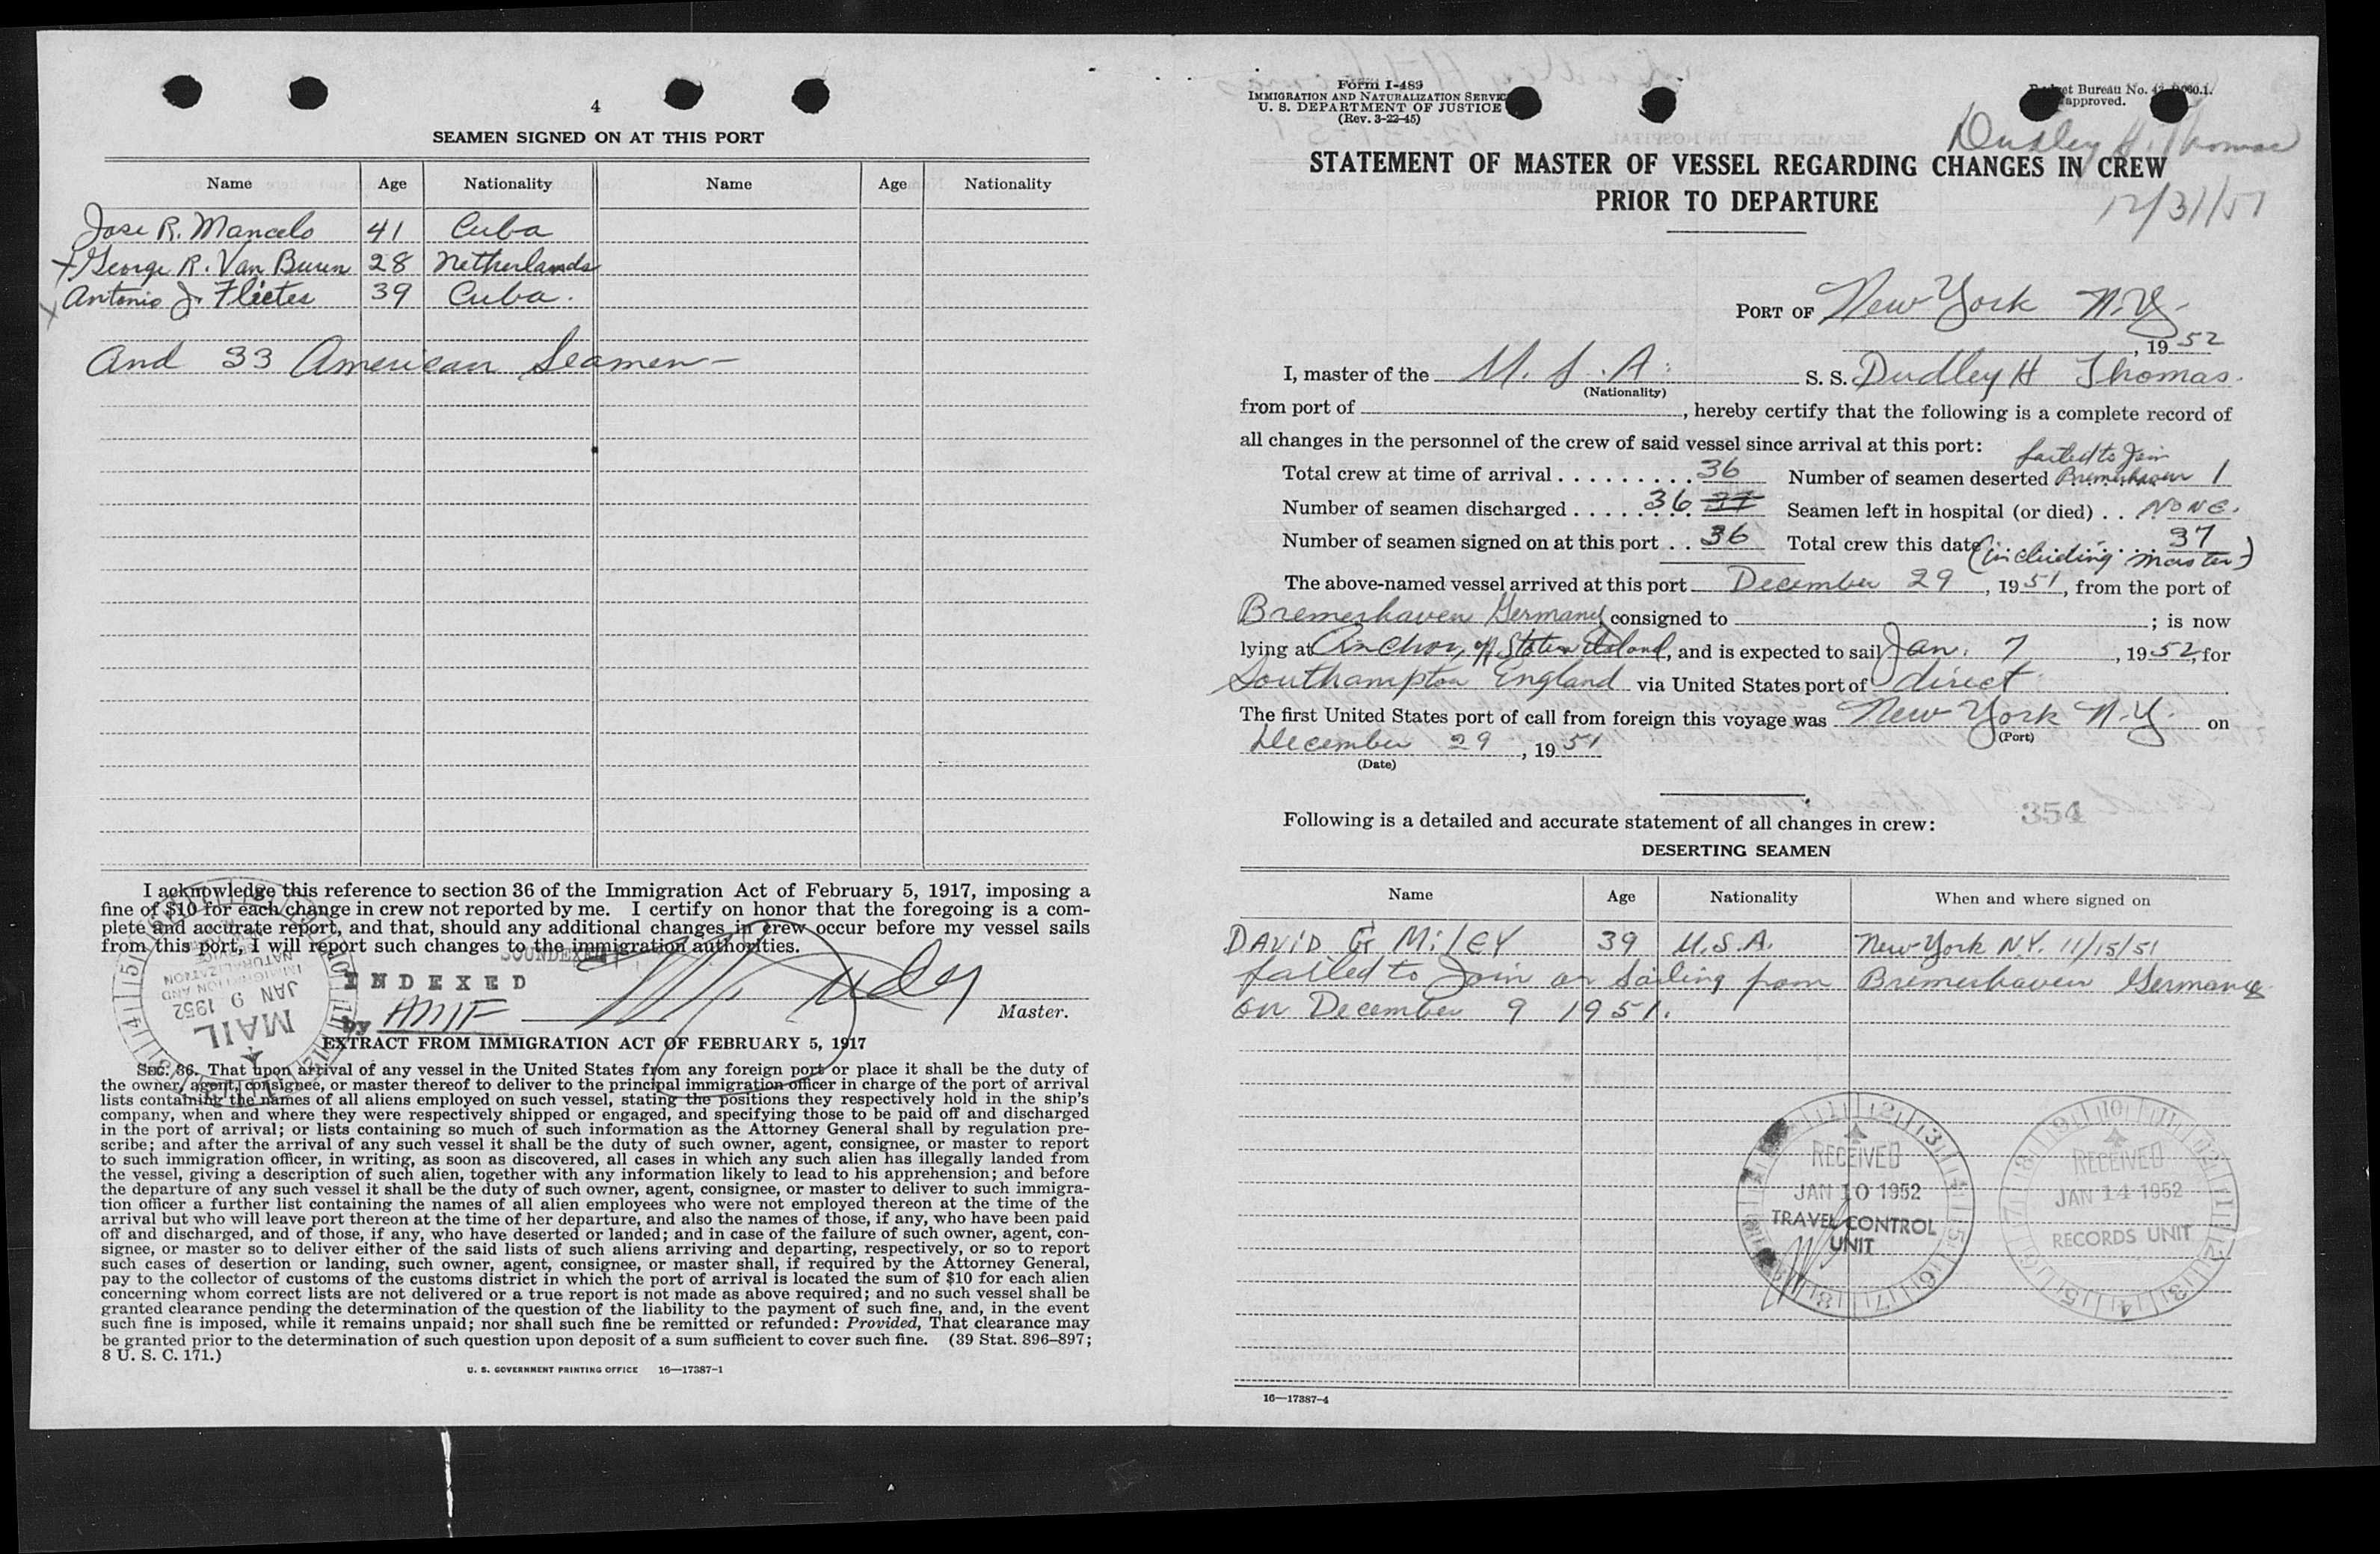 4
SEAMEN SIGNED ON AT THIS PORT
Name Age Nationality Name Age Nationality
Jose R. Mancelo 41 Cuba
x George R. Van Buren 28 Netherlands
x Antonio J. Flietes 39 Cuba.
And 33 American Seamen—
I acknowledge this reference to section 36 of the Immigration Act of February 5, 1917, imposing a
fine of $10 for each change in crew not reported by me. I certify on honor that the foregoing is a com-
plete and accurate report, and that, should any additional changes in crew occur before my vessel sails
from this port, I will report such changes to the immigration authorities.
SOUNDEXED
INDEXED
by AMF
Master.
MAIL
JAN 9 1952
IMMIGRATION AND
NATURALIZATION
EXTRACT FROM IMMIGRATION ACT OF FEBRUARY 5, 1917
SEC. 36. That upon arrival of any vessel in the United States from any foreign port or place it shall be the duty of
the owner, agent, consignee, or master thereof to deliver to the principal immigration officer in charge of the port of arrival
lists containing the names of all aliens employed on such vessel, stating the positions they respectively hold in the ship's
company, when and where they were respectively shipped or engaged, and specifying those to be paid off and discharged
in the port of arrival; or lists containing so much of such information as the Attorney General shall by regulation pre-
scribe; and after the arrival of any such vessel it shall be the duty of such owner, agent, consignee, or master to report
to such immigration officer, in writing, as soon as discovered, all cases in which any such alien has illegally landed from
the vessel, giving a description of such alien, together with any information likely to lead to his apprehension; and before
the departure of any such vessel it shall be the duty of such owner, agent, consignee, or master to deliver to such immigra-
tion officer a further list containing the names of all alien employees who were not employed thereon at the time of the
arrival but who will leave port thereon at the time of her departure, and also the names of those, if any, who have been paid
off and discharged, and of those, if any, who have deserted or landed; and in case of the failure of such owner, agent, con-
signee, or master so to deliver either of the said lists of such aliens arriving and departing, respectively, or so to report
such cases of desertion or landing, such owner, agent, consignee, or master shall, if required by the Attorney General,
pay to the collector of customs of the customs district in which the port of arrival is located the sum of $10 for each alien
concerning whom correct lists are not delivered or a true report is not made as above required; and no such vessel shall be
granted clearance pending the determination of the question of the liability to the payment of such fine, and, in the event
such fine is imposed, while it remains unpaid; nor shall such fine be remitted or refunded: Provided, That clearance may
be granted prior to the determination of such question upon deposit of a sum sufficient to cover such fine. (39 Stat. 896–897;
8 U. S. C. 171.)
U. S. GOVERNMENT PRINTING OFFICE 16—17387-1
Form I-489
IMMIGRATION AND NATURALIZATION SERVICE
U. S. DEPARTMENT OF JUSTICE
(Rev. 3-22-45)
Bureau No.
approved.
Dudley H. Thomas
12/31/51
STATEMENT OF MASTER OF VESSEL REGARDING CHANGES IN CREW
PRIOR TO DEPARTURE
PORT OF New York N.Y.
, 1952
I, master of the U.S.A. S. S. Dudley H Thomas.
(Nationality)
from port of , hereby certify that the following is a complete record of
all changes in the personnel of the crew of said vessel since arrival at this port:
failed to Join
Total crew at time of arrival . . . . . . . . . 36 Number of seamen deserted Bremerhaven 1
Number of seamen discharged . . . . . . . 36 37 Seamen left in hospital (or died) . . NONE.
Number of seamen signed on at this port . . 36 Total crew this date (including master) 37
The above-named vessel arrived at this port December 29, 1951, from the port of
Bremerhaven Germany, consigned to ; is now
lying at Anchor, off Staten Island, and is expected to sail Jan. 7, 1952, for
Southampton England via United States port of direct
The first United States port of call from foreign this voyage was New York N.Y. on
(Port)
December 29, 1951
(Date)
354
Following is a detailed and accurate statement of all changes in crew:
DESERTING SEAMEN
Name Age Nationality When and where signed on
DAViD G MiLEY 39 U.S.A. New York N.Y. 11/15/51
failed to Join on Sailing from Bremerhaven Germany
on December 9 1951.
RECEIVED
JAN 10 1952
TRAVEL CONTROL
UNIT
RECEIVED
JAN 14 1952
RECORDS UNIT
16—17387-4